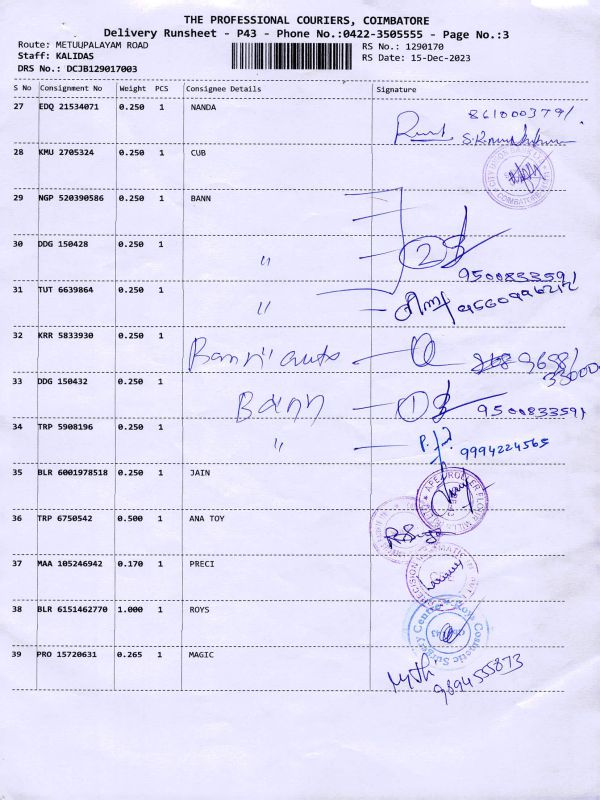 THE PROFESSIONAL COURIERS, COIMBATORE
Delivery Runsheet - P43 - Phone No.:0422-3505555 - Page No.:3
Route: METUUPALAYAM ROAD
RS No.: 1290170
Staff: KALIDAS
RS Date: 15-Dec-2023
DRS No.: DCJB129017003
S No Consignment No Weight PCS Consignee Details Signature
27 EDQ 21534071 0.250 1 NANDA
28 KMU 2705324 0.250 1 CUB
29 NGP 520390586 0.250 1 BANN
30 DDG 150428 0.250 1 " 2
9500833591
31 TUT 6639864 0.250 1 "
32 KRR 5833930 0.250 1 Bann auto
33 DDG 150432 0.250 1 Bann 1 9500833591
34 TRP 5908196 0.250 1 " 9994224565
35 BLR 6001978518 0.250 1 JAIN
36 TRP 6750542 0.500 1 ANA TOY
37 MAA 105246942 0.170 1 PRECI
38 BLR 6151462770 1.000 1 ROYS
39 PRO 15720631 0.265 1 MAGIC
9894555873